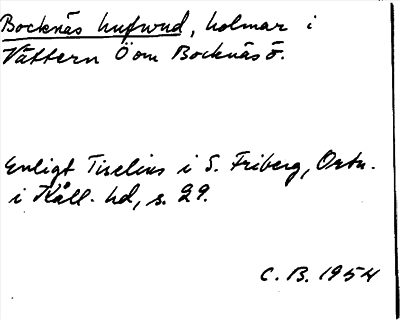 Bocknäs hufvud, holmar i
Vättern Ö om Bocknäsö.
Enligt Tiselius i S. Friberg, Ortn.
i Kåll. hd, s. 29.
C. B. 1954